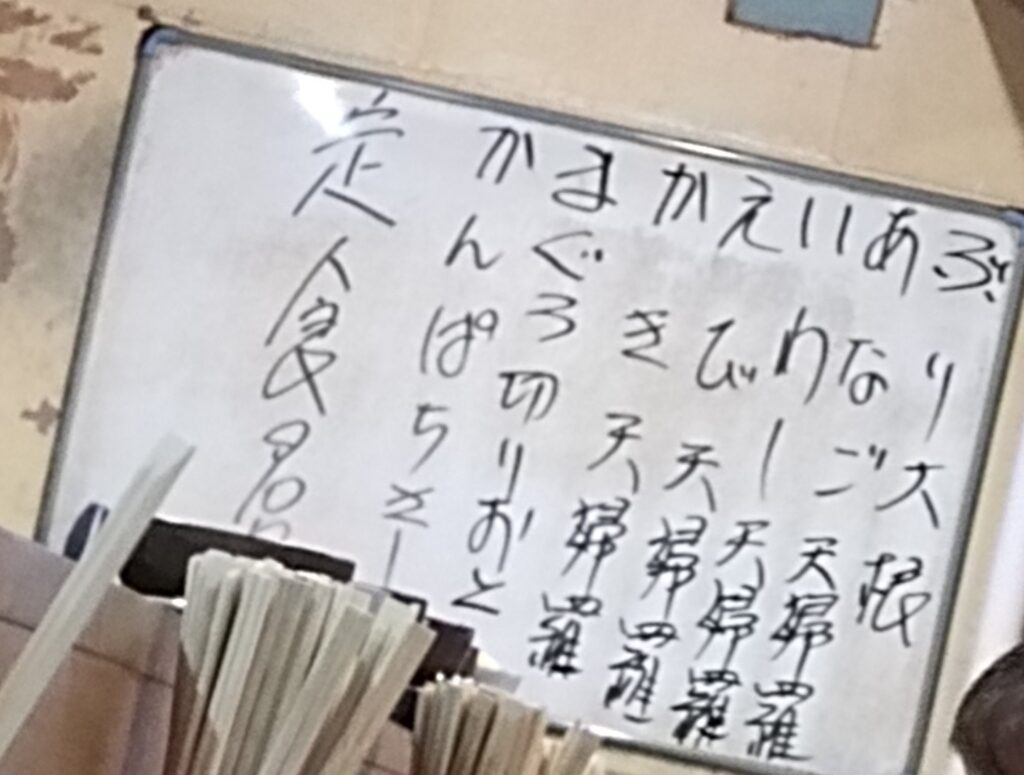 ぶり大根
あなご天婦羅
いわし天婦羅
えび天婦羅
かき天婦羅
まぐろ切りおと
かんぱちさし
定食